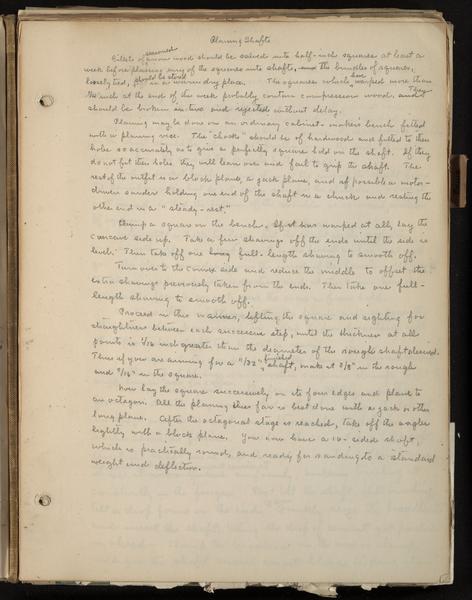 Planing Shafts
Billets of seasoned wood should be sawed into half-inch squares at least a
week before planing any of the squares into shafts, and the bundles of squares,
loosely tied, should be stored in a warm dry place. The squares which have warped more than
inch at the end of the week probably contain compression wood, and They
should be broken in two and rejected without delay.
Planing may be done on an ordinary cabinet-maker's bench fitted
with a planing vice. The "chocks" should be of hardwood and fitted to their
holes so accurately as to give a perfectly square hold on the shaft. If they
do not fit their holes they will lean over and fail to grip the shaft. The
rest of the outfit is a block plane, a jack plane, and if possible a motor-
driven sander holding one end of the shaft in a chuck and resting the
other end in a "steady-rest."
Clamp a square on the bench. If it has warped at all, lay the
concave side up. Take a few shavings off the ends until the side is
level. Then take off one long full-length shaving to smooth off.
Turn over to the convex side and reduce the middle to offset the
extra shavings previously taken from the ends. Then take one full-
length shaving to smooth off.
Proceed in this manner, lifting the square and sighting for
straightness between each successive step, until the thickness at all
points is 1/16 inch greater than the diameter of the rough shaft desired.
Thus if you are aiming for a finished shaft, make it 3/8" in the rough
and 7/16" in the square.
Now lay the square successively on its four edges and plane to
an octagon. All the planing thus far is best done with a jack or other
long plane. After the octagonal stage is reached, take off the angles
lightly with a block plane. You now have a 16-sided shaft,
which is practically round, and ready for sanding to a standard
weight and deflection.